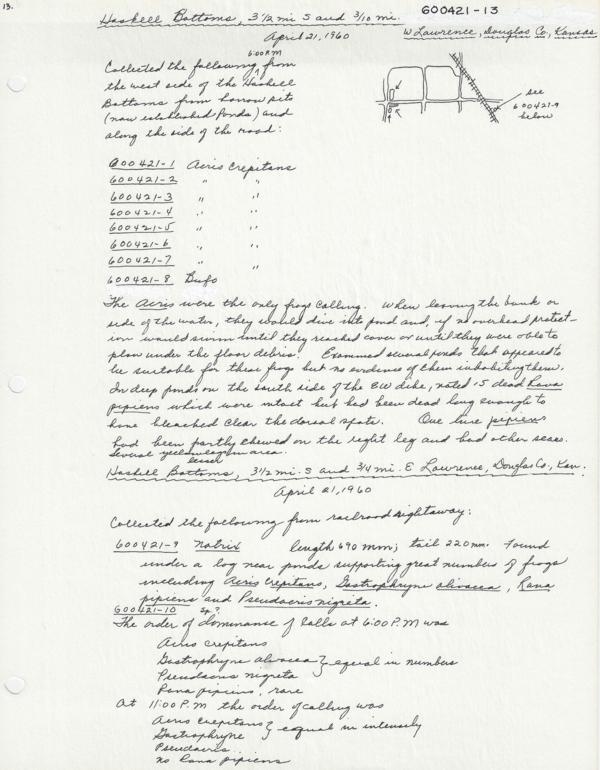 13.
600421-13
Haskell Bottoms, 3 1/2 mi S and 3/10 mi.
W Lawrence, Douglas Co, Kansas
April 21, 1960
6:00 P.M
Collected the following from
the west side of the Haskell
Bottoms from borrow pits
(now established ponds) and
along the side of the road:
see
600421-9
below
600421-1 Acris Crepitans
600421-2 " "
600421-3 " "
600421-4 " "
600421-5 " "
600421-6 " "
600421-7 " "
600421-8 Bufo
The Acris were the only frogs calling. When leaving the bank or
side of the water, they would dive into pond and, if no overhead protect-
ion would swim until they reached cover or until they were able to
plow under the floor debris. Examined several ponds that appeared to
be suitable for these frogs but no evidence of them inhabiting them.
In deep ponds on the south side of the EW dike, noted 15 dead Rana
pipiens which were intact but had been dead long enough to
have bleached clear the dorsal spots. One live pipiens
had been partly chewed on the right leg and had other scars.
Several lesser yellowlegs in area.
Haskell Bottoms, 3 1/2 mi. S and 3/4 mi. E Lawrence, Douglas Co., Kan.
April 21, 1960
Collected the following from railroad rightaway:
600421-9 Natrix length 690 mm; tail 220 mm. Found
under a log near ponds supporting great numbers of frogs
including Acris Crepitans, Gastrophryne olivacea, Rana
pipiens and Pseudacris nigrita.
600421-10 sp?
The order of dominance of calls at 6:00 P.M was
Acris crepitans
Gastrophryne olivacea } equal in numbers
Pseudacris nigreta
Rana pipiens, rare
At 11:00 P.M the order of calling was
Acris crepitans } equal in intensity
Gastrophryne
Pseudacris
no Rana pipiens